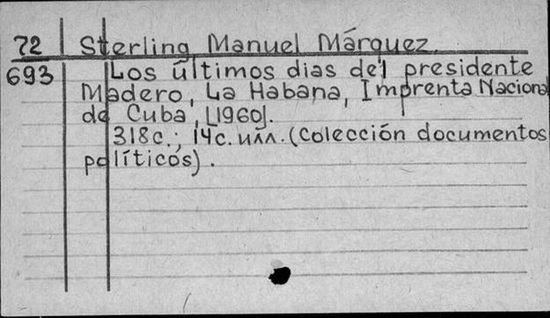 72 Sterling Manuel Márquez.
693 Los últimos dias del presidente
Madero, La Habana, Imprenta Nacional
de Cuba, [1960].
318c.; 14c. илл. (Colección documentos
políticos).